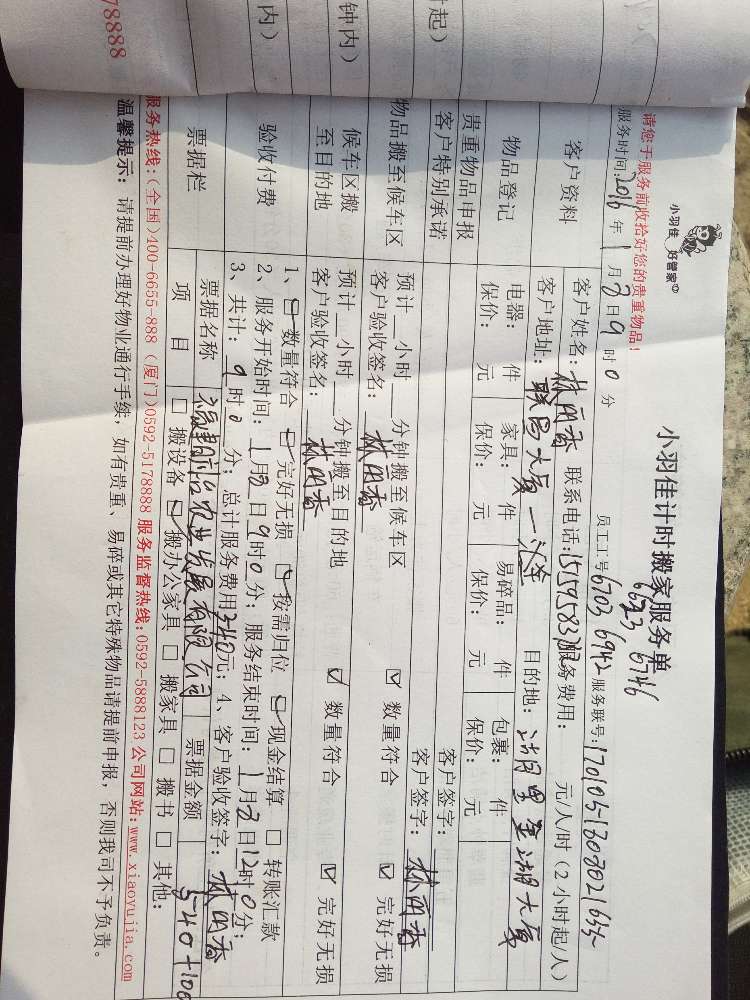 78888
内）
钟内）
起）
内）
小羽佳
好管家
小羽佳计时搬家服务单
6623 6746
请您于服务前收拾好您的贵重物品！
员工工号6703 6942服务联号：
服务时间：2016年1月3日9时0分
客户资料
客户姓名：
联系电话：
服务费用： 元/人/时（2小时起/人）
客户地址：
目的地：
物品登记
电器： 件 家具： 件 易碎品： 件 包裹： 件
保价： 元 保价： 元 保价： 元 保价： 元
贵重物品申报
客户签字：
客户特别承诺
客户签字：
物品搬至候车区
预计 小时 分钟搬至候车区
客户验收签名：
☑ 数量符合 ☑ 完好无损
候车区搬至目的地
预计 小时 分钟搬至目的地
客户验收签名：
☑ 数量符合 ☑ 完好无损
验收付费
1、☑ 数量符合 ☑ 完好无损 ☑ 按需归位 ☑ 现金结算 □ 转账汇款
2、服务开始时间：1月3日9时0分；服务结束时间：1月3日12时0分；
3、共计：9时0分；总计服务费用240元；4、客户验收签字：
票据栏
票据名称
有限公司
票据金额
项目 □ 搬设备 ☑ 搬办公家具 □ 搬家具 □ 搬书 □ 其他：
服务热线：（全国）400-6655-888（厦门）0592-5178888 服务监督热线：0592-5888123 公司网站：www.xiaoyujia.com
温馨提示：请提前办理好物业通行手续，如有贵重、易碎或其它特殊物品请提前申报，否则我司不予负责。